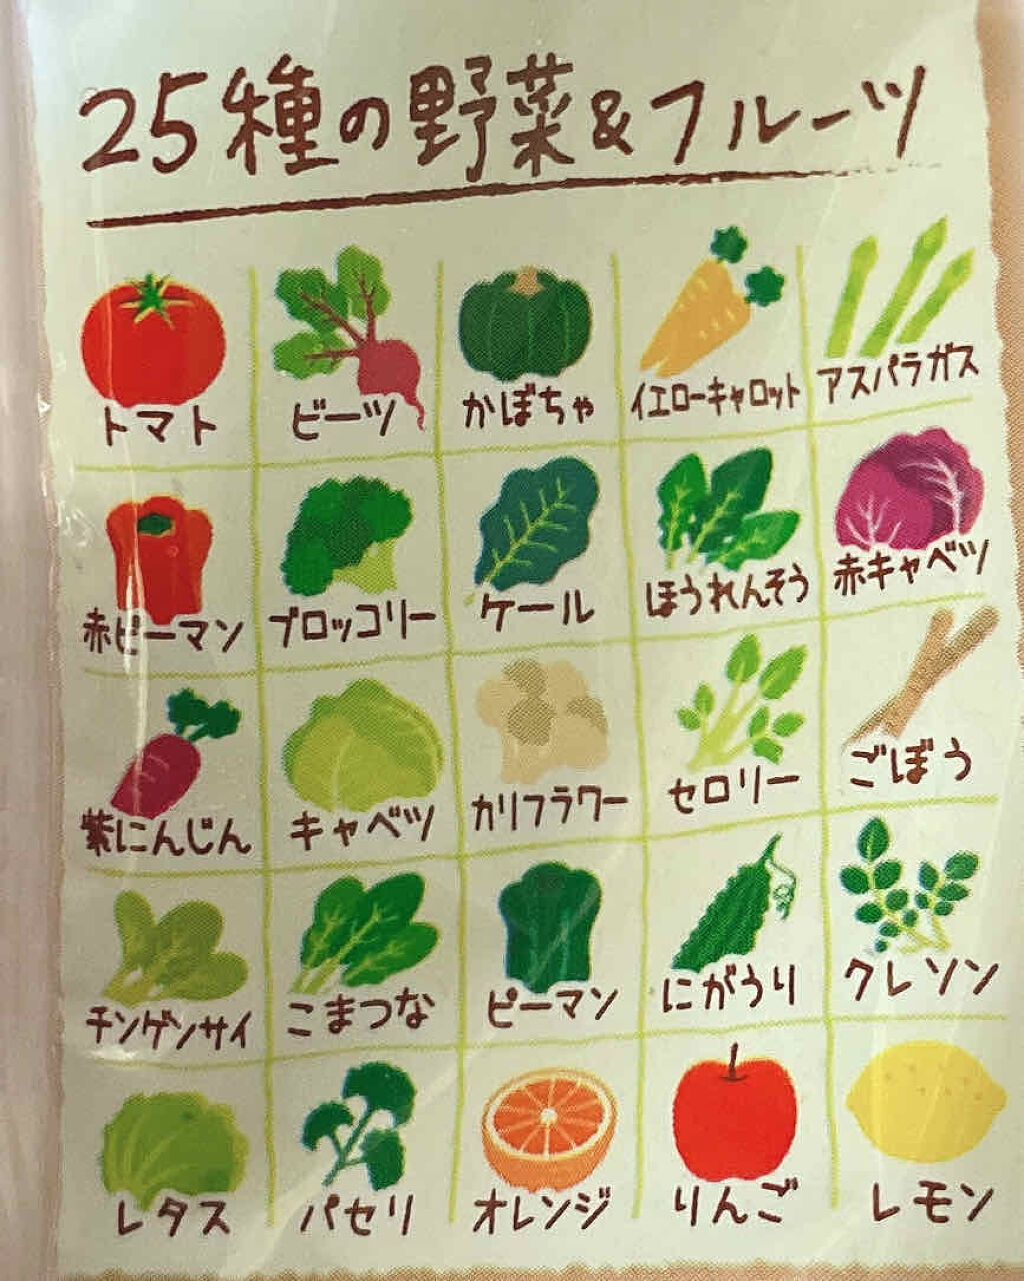 25種の野菜&フルーツ
トマト
ビーツ
かぼちゃ
イエローキャロット
アスパラガス
赤ピーマン
ブロッコリー
ケール
ほうれんそう
赤キャベツ
紫にんじん
キャベツ
カリフラワー
セロリー
ごぼう
チンゲンサイ
こまつな
ピーマン
にがうり
クレソン
レタス
パセリ
オレンジ
りんご
レモン